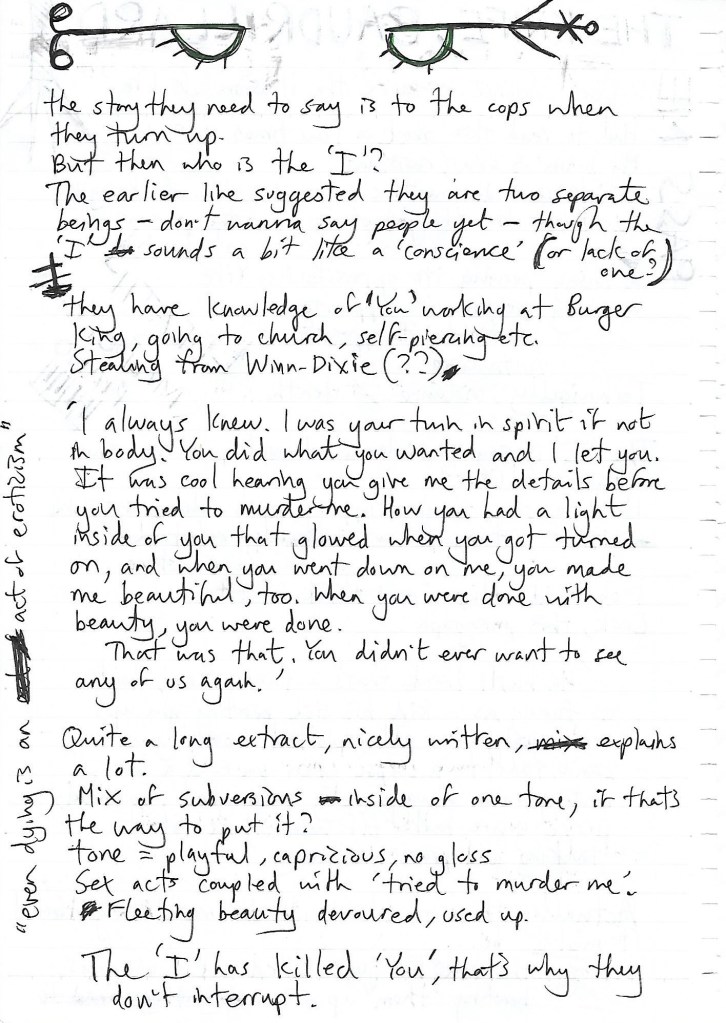 the story they need to say is to the cops when
they turn up.
But then who is the 'I'?
The earlier line suggested they are two separate
beings – don't wanna say people yet – though the
'I' sounds a bit like a 'conscience' (or lack of
one?)
they have knowledge of 'You' working at Burger
King, going to church, self-piercing etc.
Stealing from Winn-Dixie (??)
'I always knew. I was your twin in spirit if not
in body. You did what you wanted and I let you.
It was cool hearing you give me the details before
you tried to murder me. How you had a light
inside of you that glowed when you got turned
on, and when you went down on me, you made
me beautiful, too. When you were done with
beauty, you were done.
That was that. You didn't ever want to see
any of us again.'
"even dying is an act of eroticism"
Quite a long extract, nicely written, explains
a lot.
Mix of subversions inside of one tone, if that's
the way to put it?
tone = playful, capricious, no gloss
Sex acts coupled with 'tried to murder me'.
Fleeting beauty devoured, used up.
The 'I' has killed 'You', that's why they
don't interrupt.